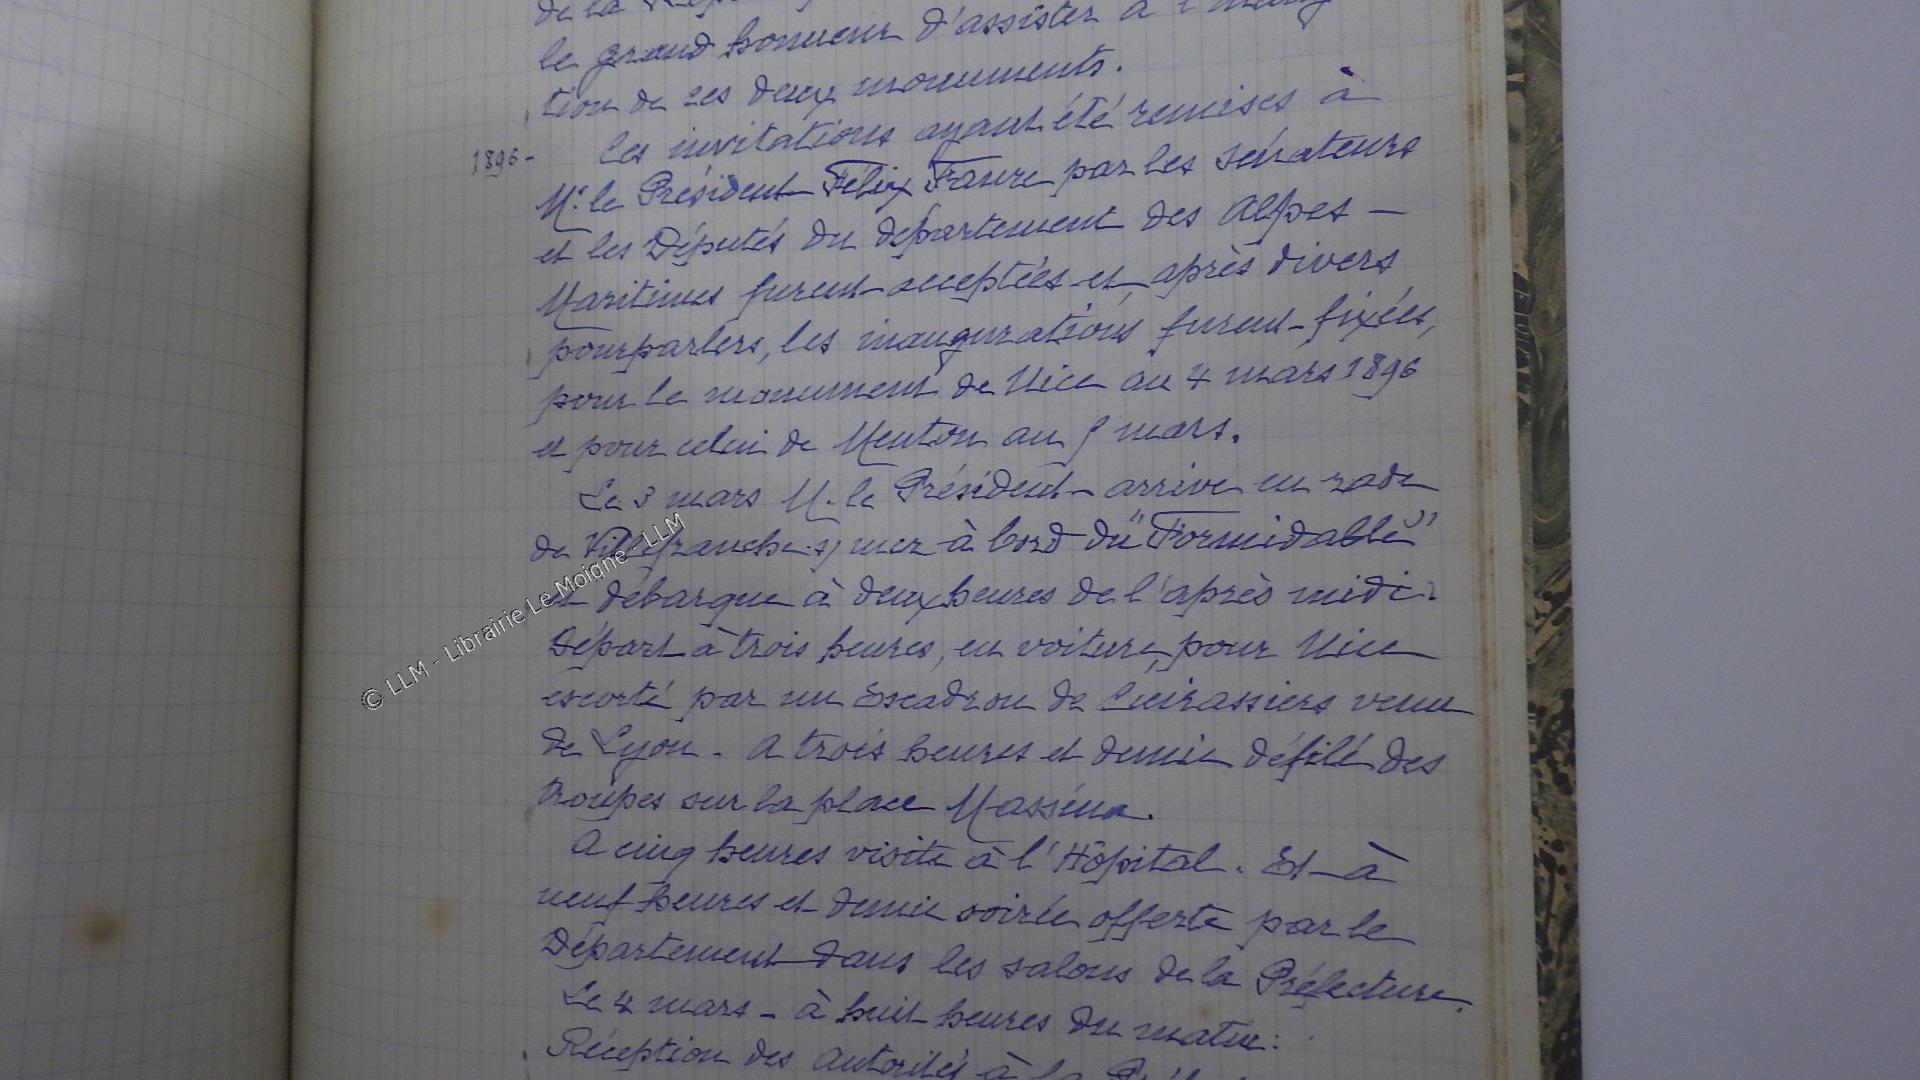 de la
le grand honneur d'assister à l'inaug
tion de ces deux monuments.
1896 - Les invitations ayant été remises à
Mr. le Président Félix Faure par les sénateurs
et les Députés du département des Alpes -
Maritimes furent acceptées et, après divers
pourparlers, les inaugurations furent fixées,
pour le monument de Nice au 4 mars 1896
et pour celui de Menton au mars.
Le 3 mars M. le Président arrive en rade
de Villefranche s/ mer à bord du "Formidable"
et débarque à deux heures de l'après midi.
Départ à trois heures, en voiture, pour Nice
escorté par un Escadron de Cuirassiers venu
de Lyon - A trois heures et demie, défilé des
troupes sur la place Masséna.
A cinq heures visite à l'Hôpital. Et à
neuf heures et demie soirée offerte par le
Département dans les salons de la Préfecture.
Le 4 mars - à huit heures du matin :
Réception des autorités à la
© LLM - Librairie Le Moigne - LLM